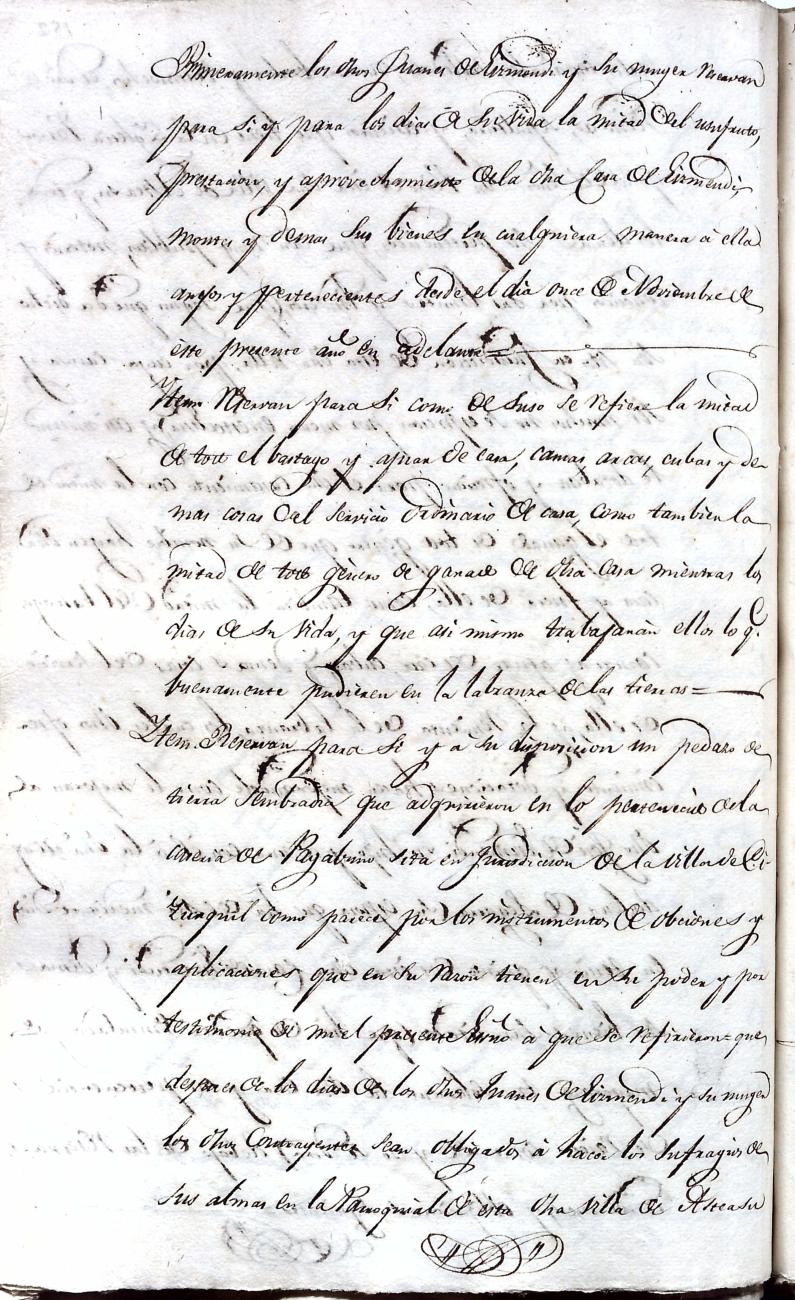 Primeramente los dhos Juanes de Eizmendi y su muger reservan
para si y para los dias de su vida la mitad del usufruto,
prestacion, y aprovechamiento de la dha Casa de Eizmendi,
montes y demas sus bienes en cualquiera manera á ella
anejos y pertenecientes desde el dia once de Noviembre de
este presente año en adelante=
Item Reservan para si como de suso se refiere la mitad
de todo el bastago y ajuar de casa, camas, arcas, cubas y de-
mas cosas del servicio ordinario de casa, como tambien la
mitad de todo género de ganado de dha casa mientras los
dias de su vida, y que asi mismo trabajarán ellos lo q.e
buenamente pudieren en la labranza de las tierras=
Item Reservan para si y á su disposicion un pedazo de
tierra sembradia que adquirieron en lo perteneciente de la
caseria de sita en Jurisdicion de la villa de Ci-
zurquil como parece por los instrumentos de obciones y
aplicaciones que en su razon tienen en su poder y por
testimonio de mi el presente Esno á que se refirieron= que
despues de los dias de los dhos Juanes de Eizmendi y su muger
los dhos Contrayentes sean obligados á hacer los sufragios de
sus almas en la Parroquial de esta dha villa de Asteasu